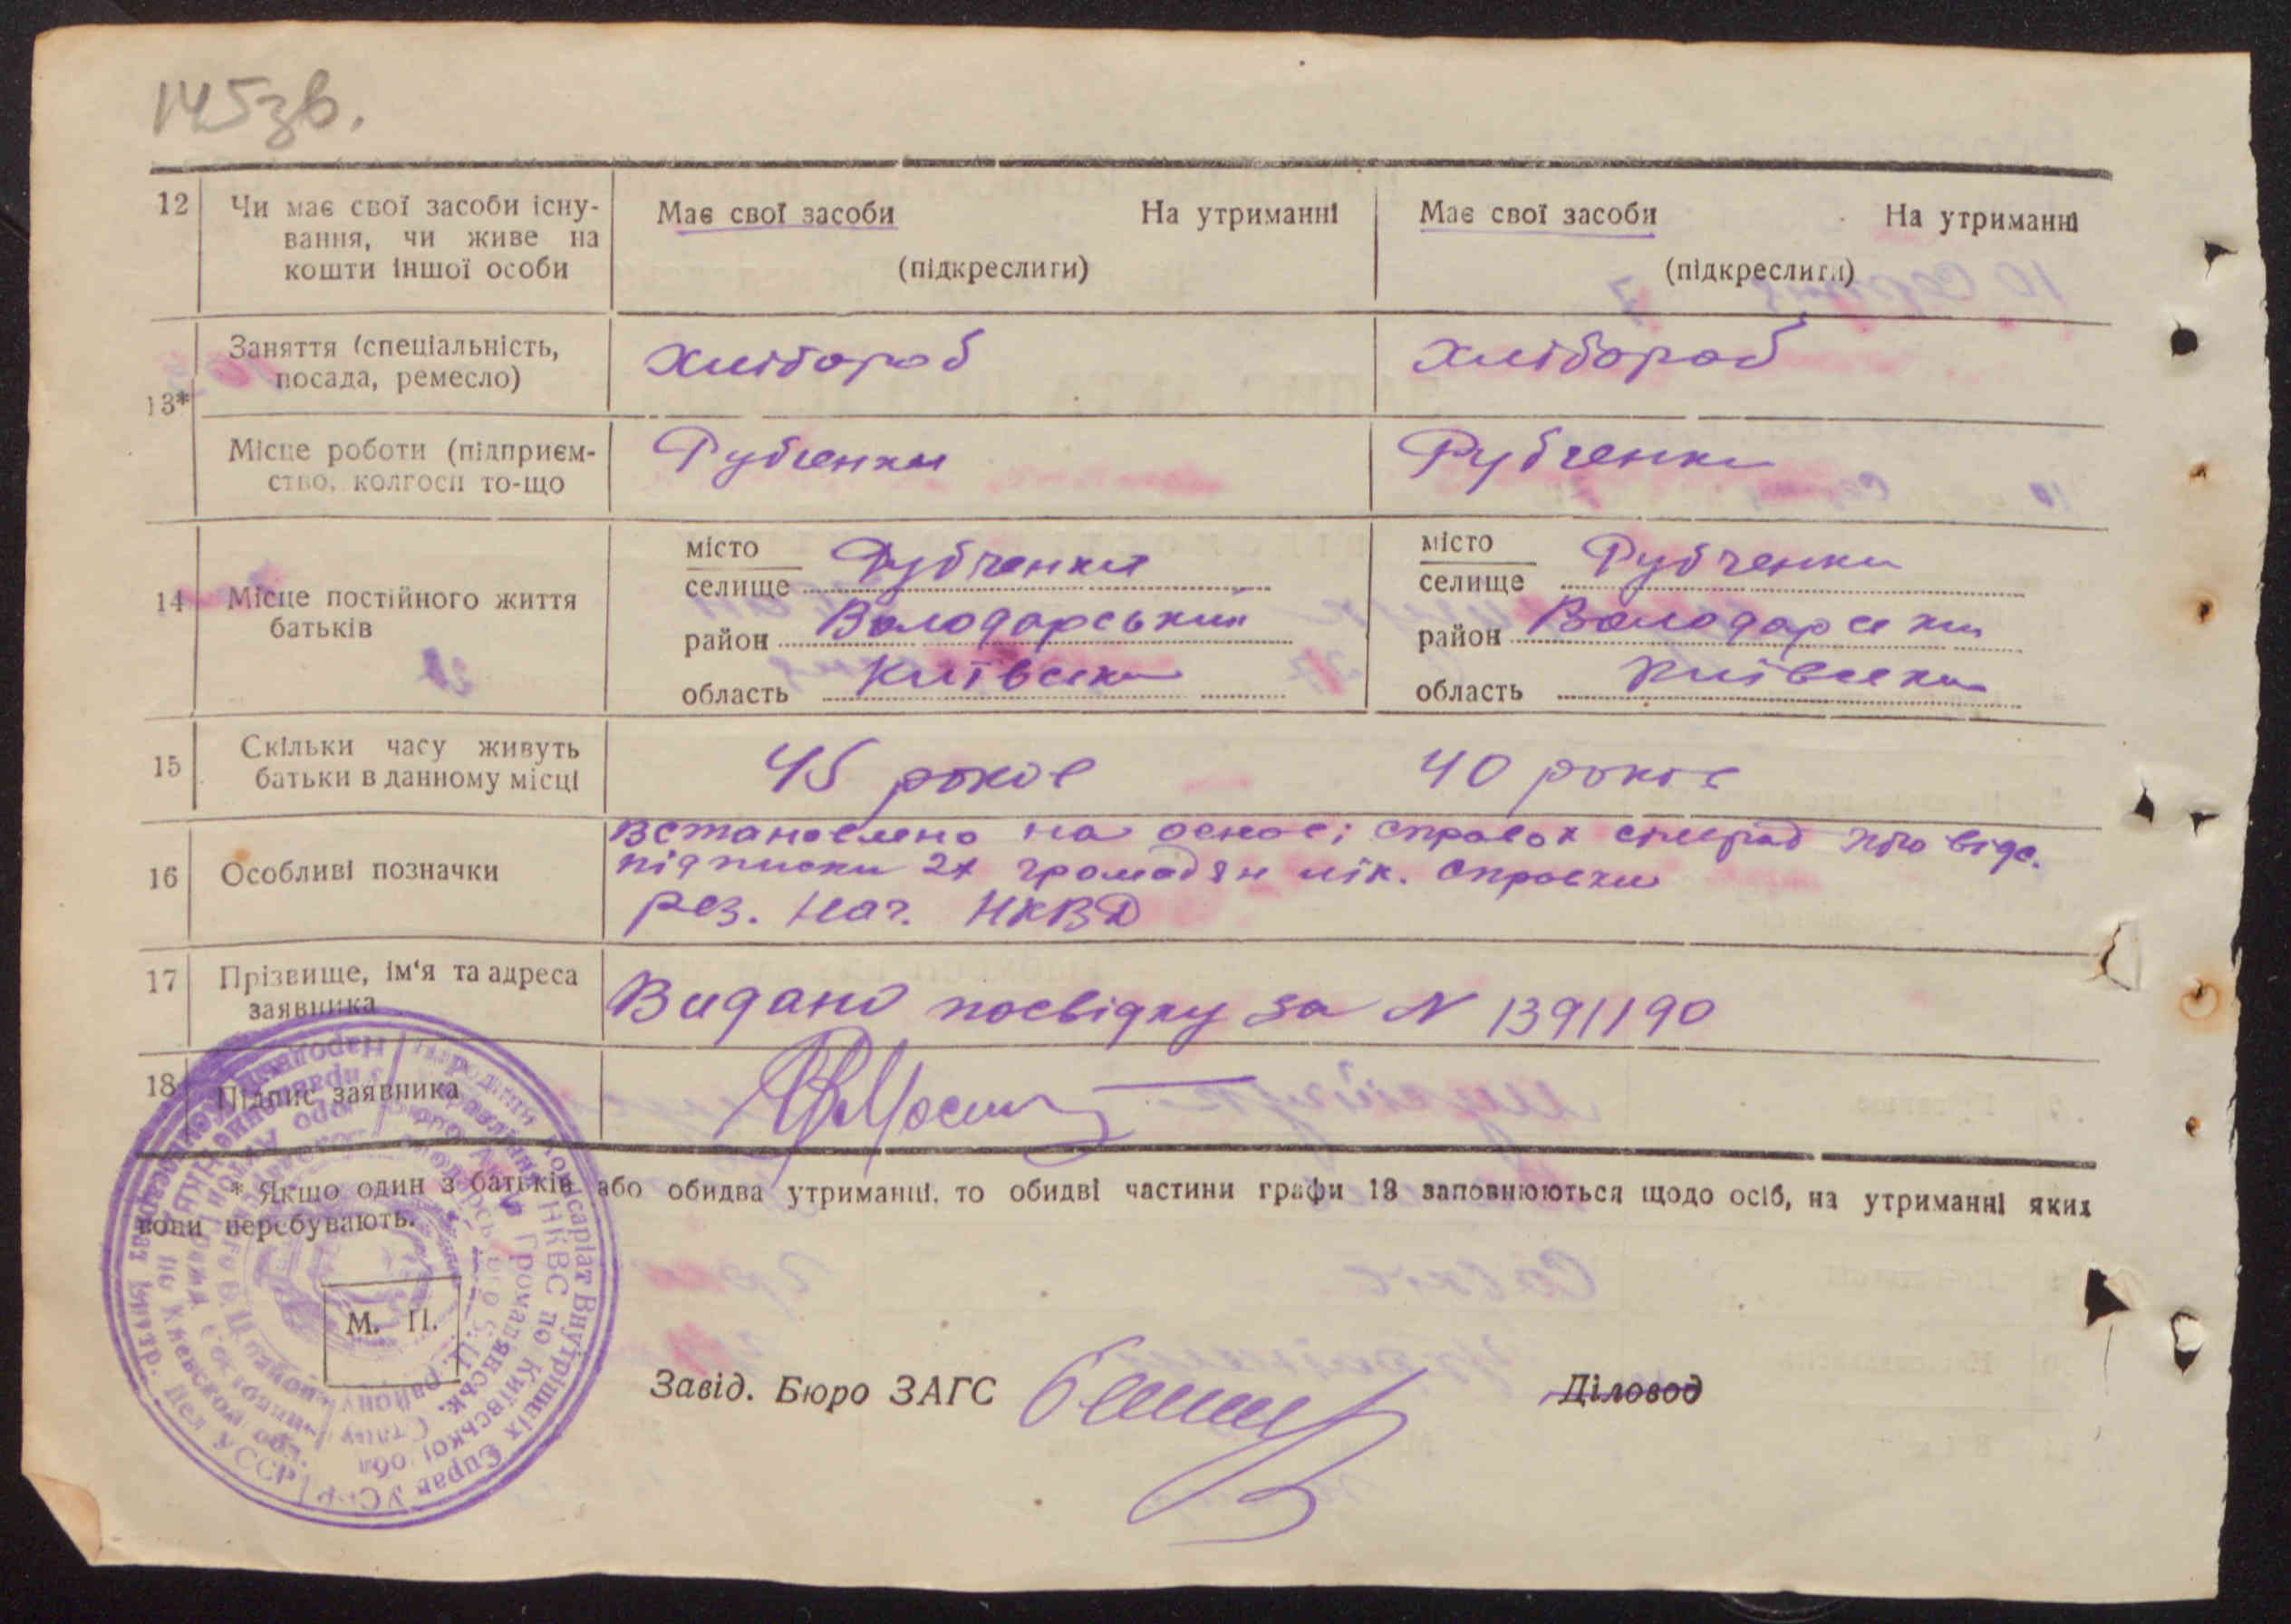 145зв.
12 Чи має свої засоби існу-
вання, чи живе на
кошти іншої особи
Має свої засоби На утриманні
(підкреслити)
Має свої засоби На утриманні
(підкреслити)
13*
Заняття (спеціальність,
посада, ремесло)
Хлібороб
Хлібороб
Місце роботи (підприєм-
ство, колгосп то-що
Рубченки
Рубченки
14 Місце постійного життя
батьків
місто
селище Рубченки
район Володарський
область Київська
місто
селище Рубченки
район Володарски
область Київска
15 Скільки часу живуть
батьки в данному місці
45 років
40 років
16 Особливі позначки
Встановлено на основі справок сільрад про відс.
підписки 2х громадян лік. справки
рез. Нач. НКВД
17 Прізвище, ім'я та адреса
заявника
Видано посвідку за N 1391190
18 Підпис заявника
* Якщо один з батьків або обидва утриманці, то обидві частини графи 13 заповнюються щодо осіб, на утриманні яких
вони перебувають.
М. П.
Завід. Бюро ЗАГС
Діловод